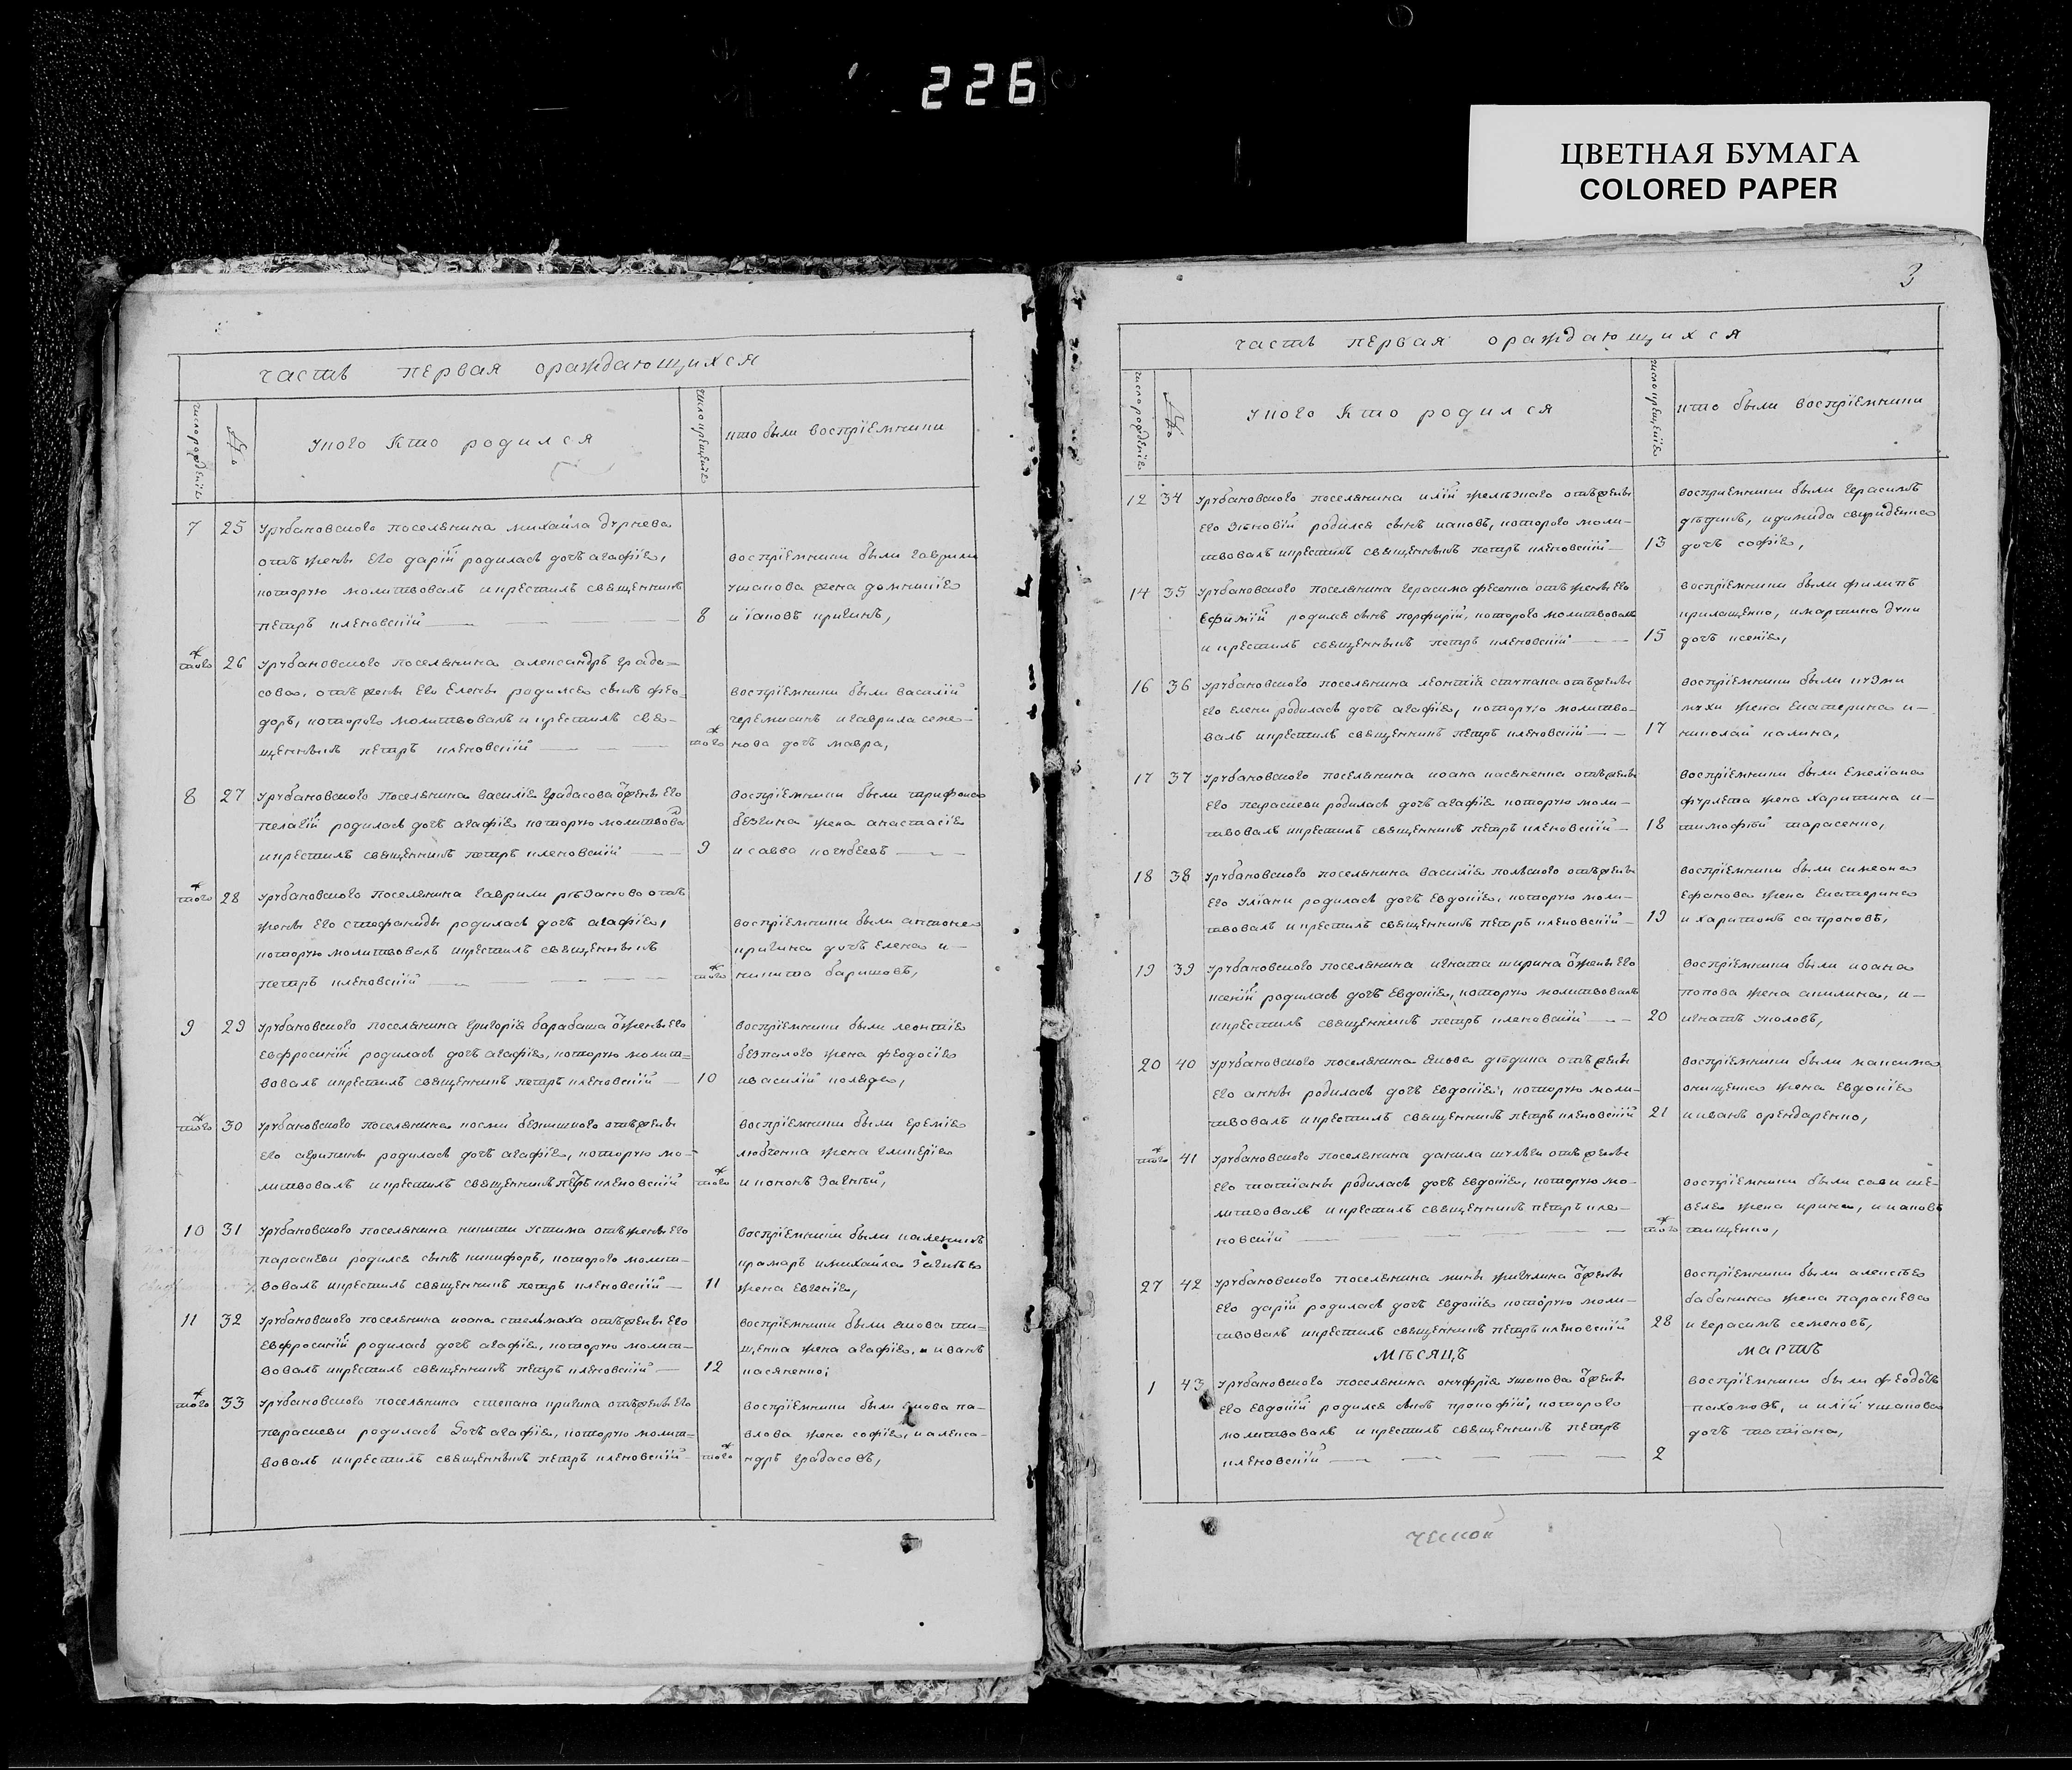 226
ЦВЕТНАЯ БУМАГА
COLORED PAPER
часть первая ораждающихся
число рождениѧ
№
Уного Кто родился
число крещениѧ
кто были воспрїемники
7 25 Урубановского поселянина михайла дурнева
отъ жены Его дарїй родилась дочь агафїѧ,
которую молитвовалъ икрестилъ священникъ
петръ кленовскїй
воспрїемники были гаврили
ушакова жена домникїѧ
8 иїаковъ кричинъ,
того 26 Урубановского поселянина александръ градо-
сова, отъ жены Его Елены родился сынъ фео-
доръ, которого молитвовалъ и крестилъ свя-
щенникъ петръ кленовскїй
воспрїемники были василїй
черемисинъ игаврила семе-
того нова дочь мавра,
8 27 Урубановского поселянина василїѧ градасова ѿжены Его
пелагїй родилась дочь агафїѧ которую молитвова
икрестилъ священникъ петръ кленовскїй
воспрїемники были трифона
безгина жена анастасїѧ
9 исавва кочубеевъ
того 28 Урубановского поселянина гаврили рѣзаново отъ
жены Его стефаниды родилась дочь агафїѧ,
которую молитвовалъ икрестилъ священникъ
петръ кленовскїй
воспрїемники были антона
кричина дочь Елена и-
того никита баришовъ,
9 29 Урубановского поселянина григорїѧ барабаша ѿжены Его
Евфросинїй родилась дочь агафїѧ, которую молит-
вовалъ икрестилъ священникъ петръ кленовскїй
воспрїемники были леонтїѧ
безпалого жена феодосїѧ
10 ивасилїй колѧда,
того 30 Урубановского поселянина косми отъ жены
Его агрипины родилась дочь агафїѧ, которую мо-
литвовалъ икрестилъ священникъ петръ кленовскїй
воспрїемники были Еремїѧ
любченка жена гликерїѧ
того и кононъ
10 31 Урубановского поселянина никити Устима отъ жены Его
параскеви родился сынъ никифоръ, которого молит-
вовалъ икрестилъ священникъ петръ кленовскїй
воспрїемники были каленикъ
крамаръ имихайла
11 жена Евгенїѧ,
11 32 Урубановского поселянина иоана стельмаха отъ жены Его
Евфросинїй родилась дочь агафїѧ, которую молит-
вовалъ икрестилъ священникъ петръ кленовскїй
воспрїемники были якова ти-
щенка жена агафїѧ, и иванъ
12 касяненко;
того 33 Урубановского поселянина степана кричина отъ жены Его
параскеви родилась Дочь агафїѧ, которую молит-
вовалъ икрестилъ священникъ петръ кленовскїй
воспрїемники были якова па-
влова жена софїѧ, иалекса-
того ндръ градасовъ,
3
часть первая ораждающихся
число рождениѧ
№
Уного Кто родился
число крещениѧ
кто были воспрїемники
12 34 Урубановского поселянина илїй желѣзного отъ жены
Его Зѣновїй родился сынъ иаковъ, которого моли-
твовалъ икрестилъ священникъ петръ кленовскїй
восприемники были герасимъ
дѣдикъ, идимида свириденка
13 дочь софїѧ,
14 35 Урубановского поселянина герасима фесенка отъ жены Его
Ефимїй родился сынъ порфирїй, которого молитвовалъ
и крестилъ священникъ петръ кленовскїй
воспрїемники были филипъ
крилащенко, имартина дуки
15 дочь ксенїѧ,
16 36 Урубановского поселянина леонтїѧ ступака отъ жены
Его Елени родилась дочь агафїѧ, которую молитво-
валъ икрестилъ священникъ петръ кленовскїй
воспрїемники были кузми
мухи жена Екатерина и-
17 николай калина,
17 37 Урубановского поселянина иоана касяненка отъ жены
Его параскеви родилась дочь агафїѧ которую моли-
твовалъ икрестилъ священникъ петръ кленовскїй
воспрїемники были Емелїана
фурлета жена Харитина и-
18 тимофѣй тарасенко,
18 38 Урубановского поселянина василїѧ полского отъ жены
Его Улїани родилась дочь Евдокїѧ, которую моли-
твовалъ и крестилъ священникъ петръ кленовскїй
воспрїемники были симеона
Ефанова жена Екатерина
19 и харитонъ сапроновъ,
19 39 Урубановского поселянина игната ширина ѿжены Его
ксенїй родилась дочь Евдокїѧ, которую молитвовалъ
икрестилъ священникъ петръ кленовскїй
воспрїемники были иоана
попова жена акилина, и-
20 игнатъ Уколовъ,
20 40 Урубановского поселянина Якова дѣдика отъ жены
Его анны родилась дочь Евдокїѧ, которую моли-
твовалъ икрестилъ священникъ петръ кленовскїй
воспрїемники были максима
онищенка жена Евдокїѧ
21 ииванъ орендаренко,
того 41 Урубановского поселянина данила шулѣги отъ жены
Его татїаны родилась дочь Евдокїѧ, которую мо-
литвовалъ икрестилъ священникъ петръ кле-
новскїй
воспрїемники были сави ше-
велѧ жена ирина, и иаковъ
того тищенко,
27 42 Урубановского поселянина мины жигулина ѿжены
Его дарїй родилась дочь Евдокїѧ которую моли-
твовалъ икрестилъ священникъ петръ кленовскїй
воспрїемники были алексѣѧ
бабанина жена параскева
28 игерасимъ семеновъ,
мѣсяцъ мартъ
1 43 Урубановского поселянина онуфрїѧ Ушакова ѿжены
Его Евдокїй родился сынъ прокофїй, которого
молитвовалъ икрестилъ священникъ петръ
кленовскїй
воспрїемники были феодоръ
пахомовъ, и илїй ушакова
дочь татїана,
2